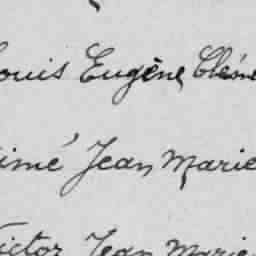 Louis Eugène Cléme
Aimé Jean Marie
Victor Jean Marie